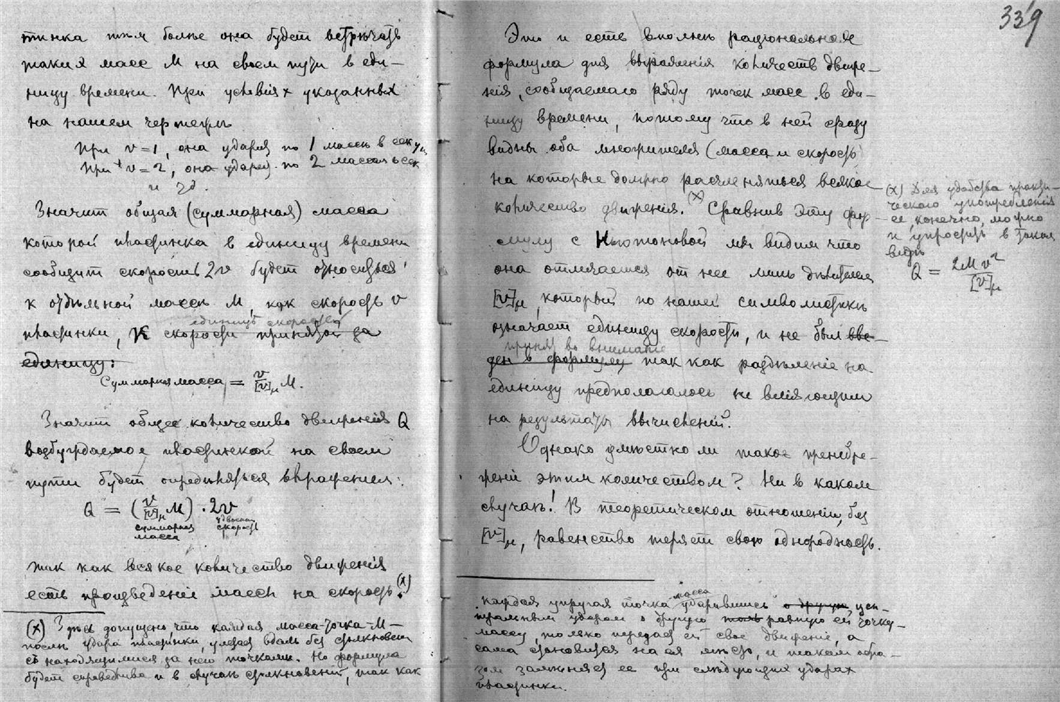 тинка тѣм болѣе она будет встрѣчать
такия масс М на своем пути в еди-
ницу времени. При условіях указанных
на нашем чертежѣ
при v=1, она ударяя по 1 массѣ в секун.
при v=2, она ударяя по 2 массам в сек.
и т.д.
Значит общая (суммарная) масса
которой пластинка в единицу времени
сообщит скорость 2v будет относиться
к отдѣльной массѣ М, как скорость v
единицѣ скорости
пластинки, к скорости принятой за
единицу:
Суммарная масса = v/[v]μ М.
Значит общее количество движенія Q
возбуждаемое пластинкой на своем
пути будет опредѣляться выраженіем:
Q = (v/[v]μ М) · 2v
суммарная масса
удвоенная скорость
так как всякое количество движенія
есть произведеніе массы на скорость. (х)
(х) Здѣсь допущено что каждая масса-точка-М-
послѣ удара пластинки, улетая вдаль без столкновенія
с находящимися за нею точками. Но формула
будет справедлива и в случаѣ столкновеній, так как
339
Это и есть вполнѣ раціональная
формула для выраженія количеств движе-
нія, сообщаемаго ряду точек масс в еди-
ницу времени, потому что в ней сразу
видны оба множителя (масса и скорость
на которые должно расчленяться всякое
количество движенія. (х) Сравнив эту фор-
мулу с Ньютоновой мы видим что
она отличается от нее лишь дѣлителем
[v]μ, который по нашей символистикѣ
означает единицу скорости, и не был вве-
принят во вниманіе
ден в формулу так как раздѣленіе на
единицу предполагалось не вліяющим
на результаты вычисленій.
Однако умѣстно ли такое пренебре-
женіе этим количеством? Ни в каком
случаѣ! В теоретическом отношеніи, без
[v]μ, равенство теряет свою однородность.
(х) Для удобства практи-
ческаго употребленія
ее конечно, можно
и упростить в такой
видъ
Q = 2Мv²/[v]μ
масса
каждая упругая точка ударившись о другую, цен-
тральным ударом о другую равную ей точку-
массу, только передает ей свое движеніе, а
сама становится на ея мѣсто, и таким обра-
зом замѣняет ее при слѣдующих ударах
пластинки.